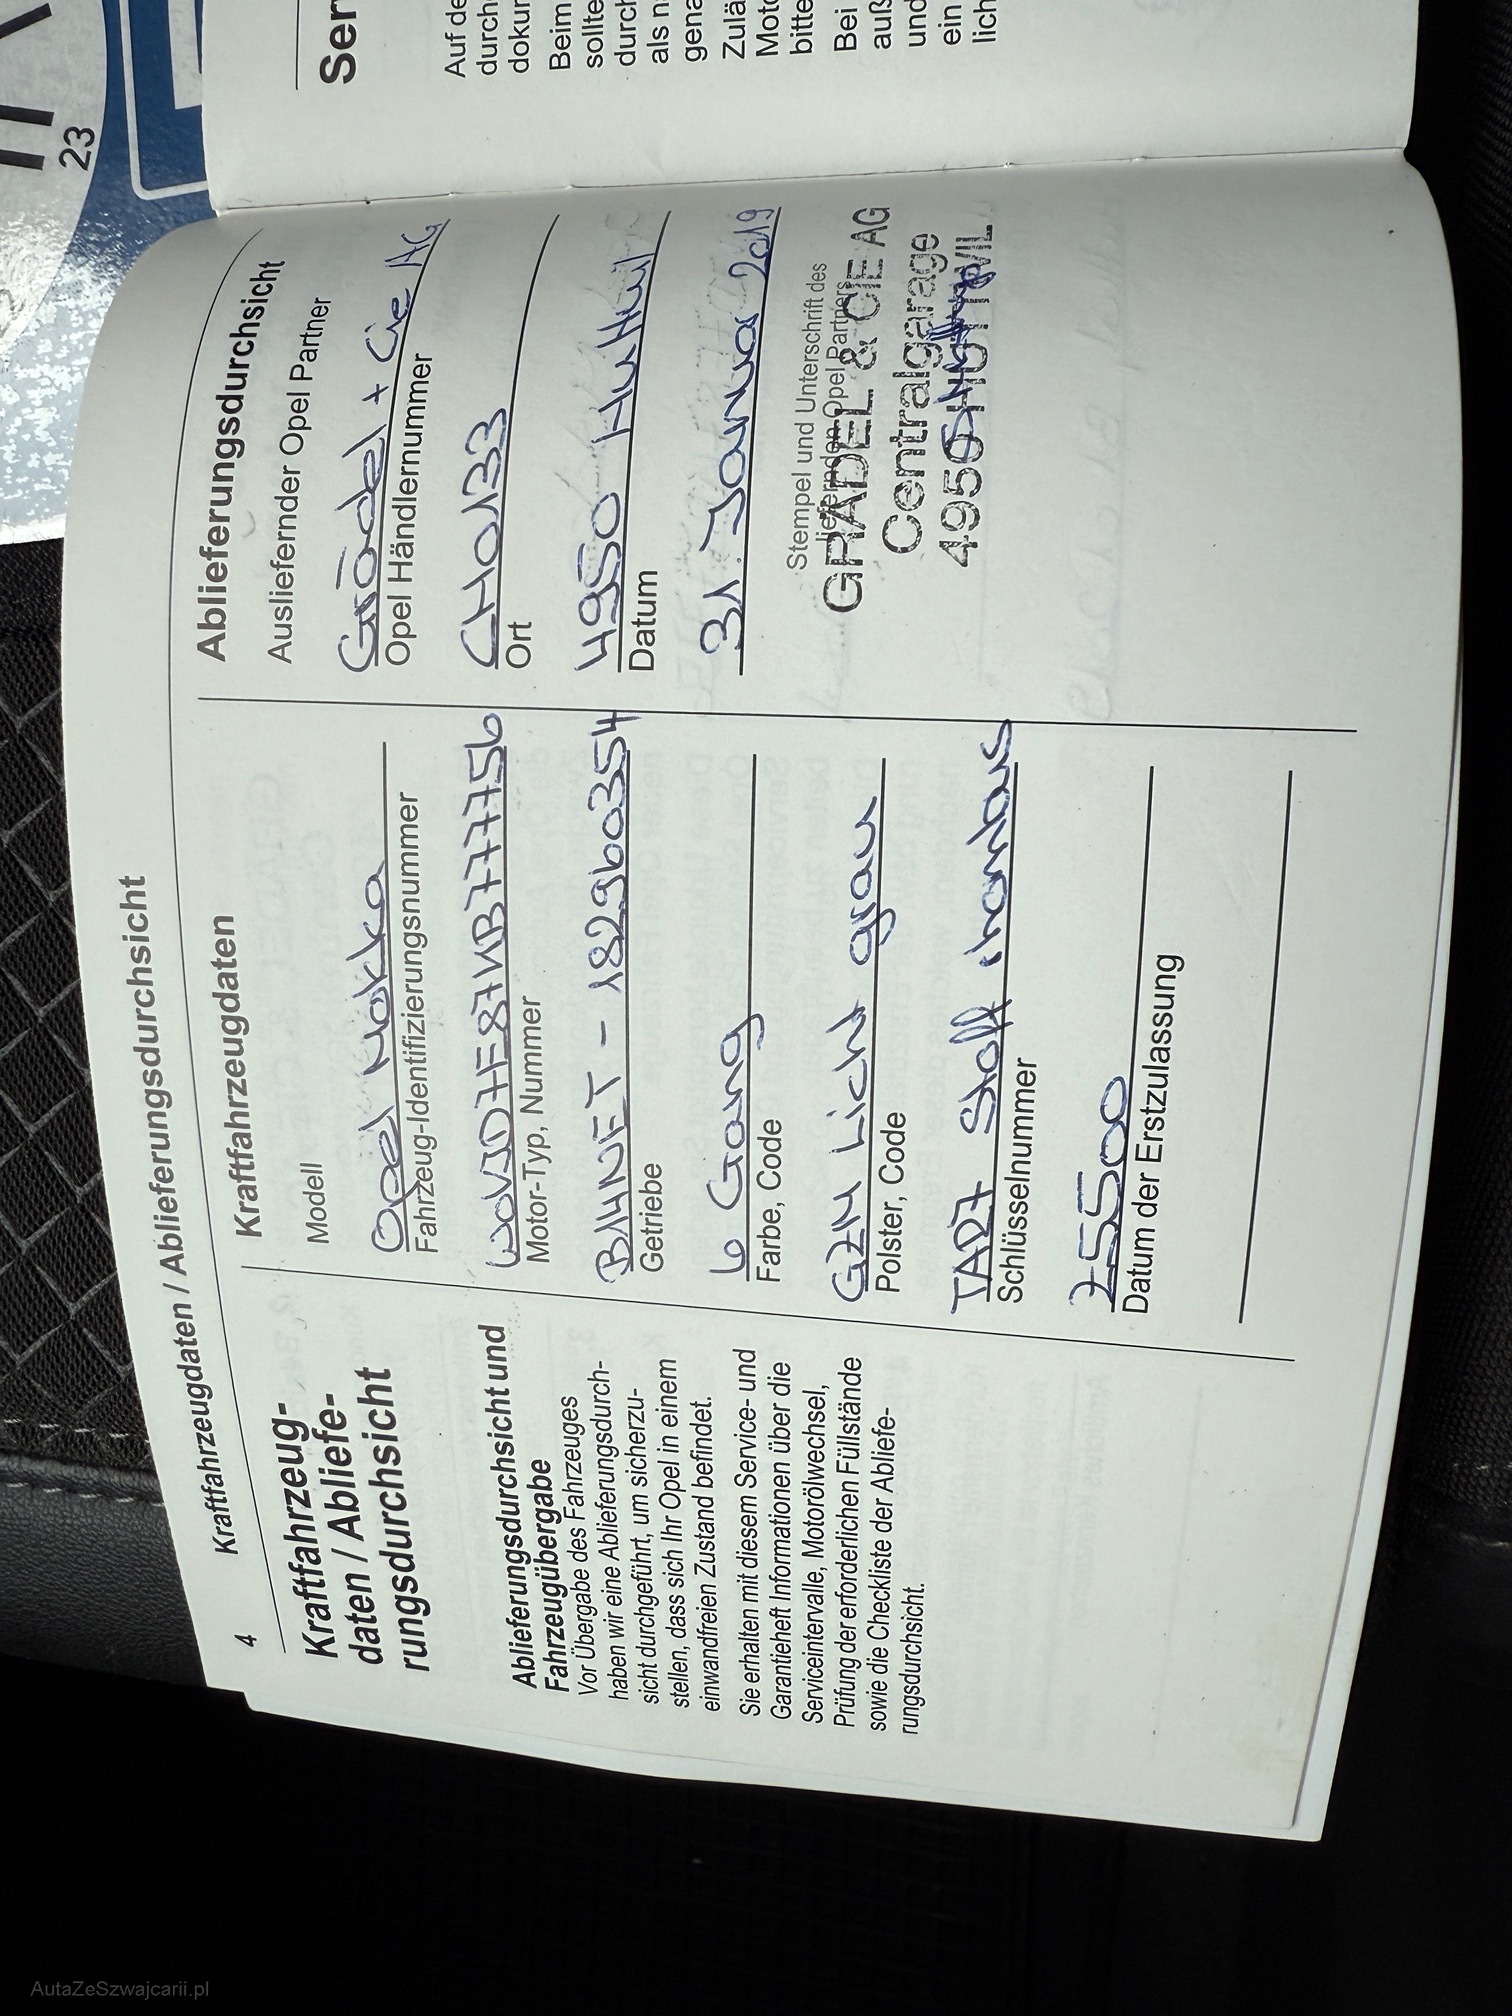 4
Kraftfahrzeugdaten / Ablieferungsdurchsicht
Kraftfahrzeug-
daten / Abliefe-
rungsdurchsicht
Ablieferungsdurchsicht und
Fahrzeugübergabe
Vor Übergabe des Fahrzeuges
haben wir eine Ablieferungsdurch-
sicht durchgeführt, um sicherzu-
stellen, dass sich Ihr Opel in einem
einwandfreien Zustand befindet.
Sie erhalten mit diesem Service- und
Garantieheft Informationen über die
Serviceintervalle, Motorölwechsel,
Prüfung der erforderlichen Füllstände
sowie die Checkliste der Abliefe-
rungsdurchsicht.
Kraftfahrzeugdaten / Ablieferungsdurchsicht
Kraftfahrzeugdaten
Modell
Opel Mokka
Fahrzeug-Identifizierungsnummer
W0VJD7E87KB777756
Motor-Typ, Nummer
B14NET - 182960354
Getriebe
6 Gang
Farbe, Code
GZ14 Licht grau
Polster, Code
TAD7 Stoff
Schlüsselnummer
75500
Datum der Erstzulassung
Ablieferungsdurchsicht
Ausliefernder Opel Partner
Grädel + Cie AG
Opel Händlernummer
CH0133
Ort
4950 Huttwil
Datum
31. Januar 2019
Stempel und Unterschrift des
liefernden Opel Partners
GRÄDEL & CIE AG
Centralgarage
4950 HUTTWIL
Ser
Auf de
durch
dokur
Beim
sollte
durch
als n
gena
Zulä
Moto
bitte
Bei
auß
und
ein
lich
23
AutaZeSzwajcarii.pl